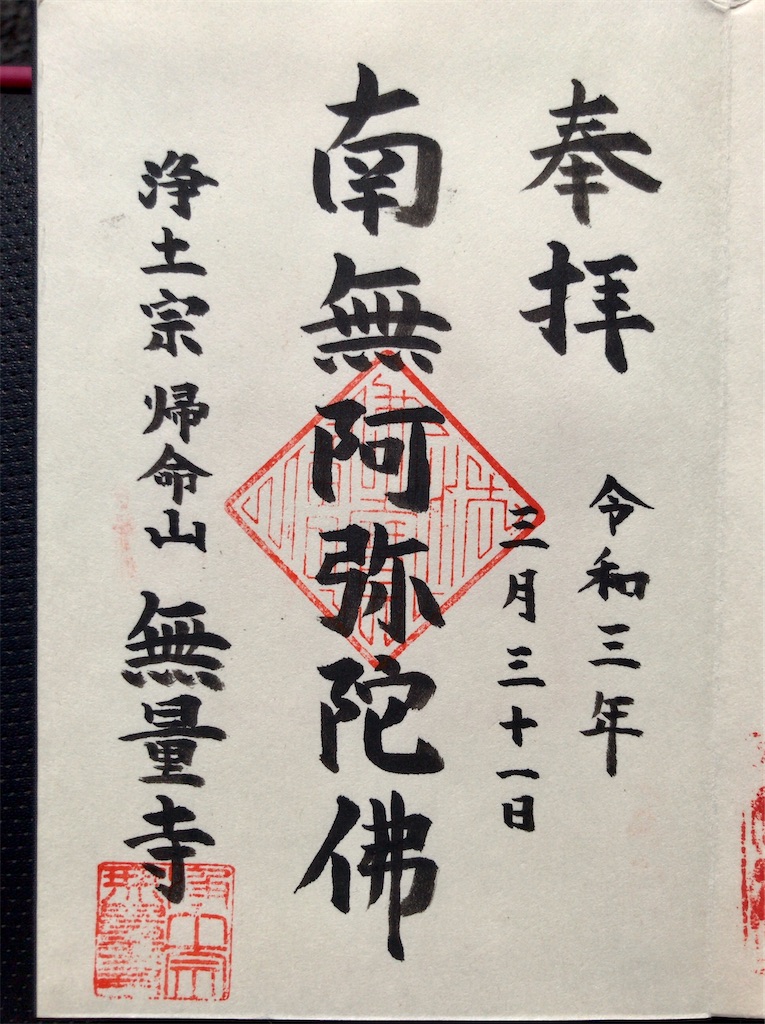 奉拝
令和三年
三月三十一日
南無阿弥陀佛
浄土宗 帰命山 無量寺